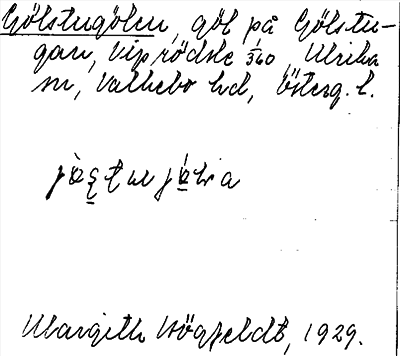 Gölstugölen, göl på Gölstu-
gan, Viprödsle 1/360, Ulrika
sn, Valkebo hd, Österg. l.
Margith Högfeldt, 1929.